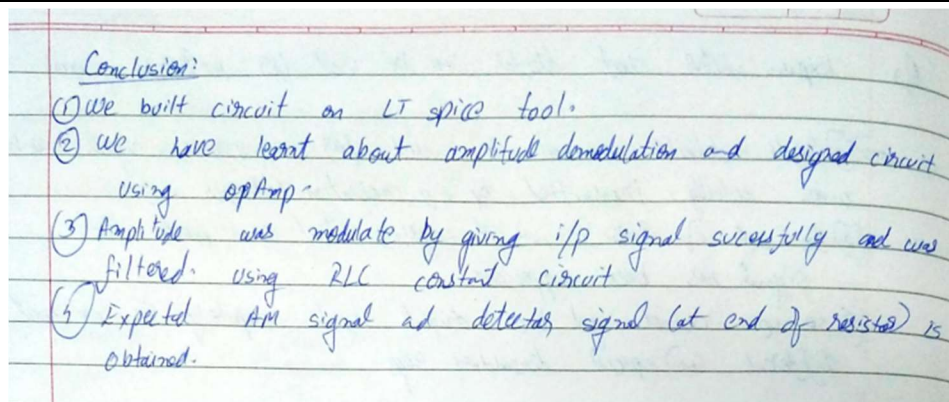 Conclusion:
① We built circuit on LT spice tool.
② We have learnt about amplitude demodulation and designed circuit
using opAmp.
③ Amplitude was modulate by giving i/p signal sucessfully and was
filtered. using RLC constant circuit
Expected AM signal ad detector signal (at end of resistor) is
obtained.